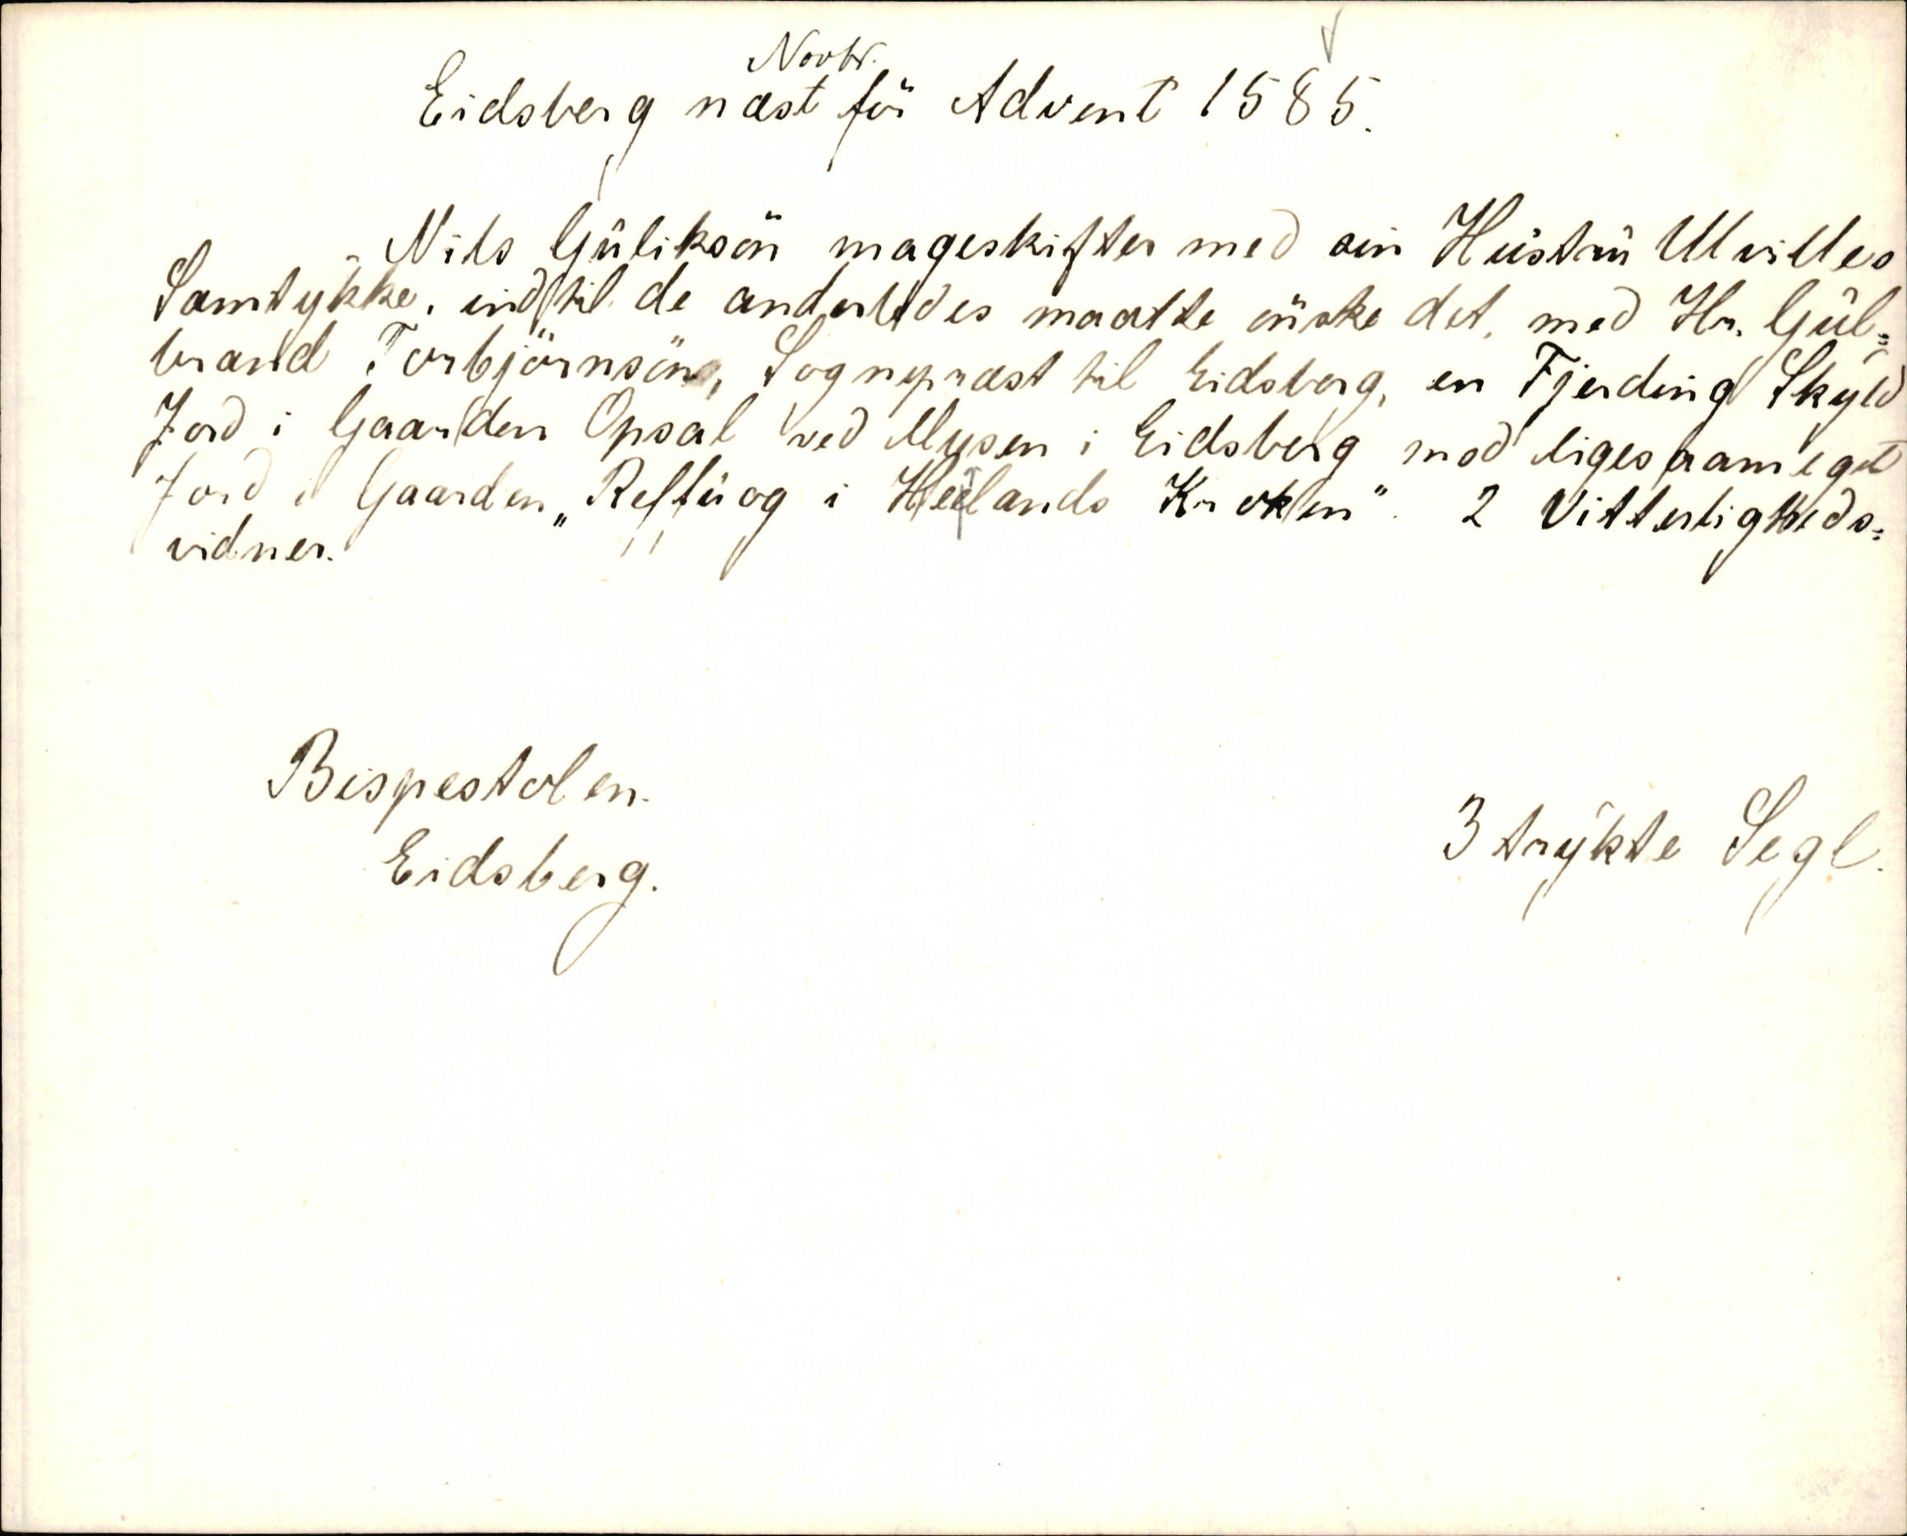 Novbr.
Eidsberg næst för Advent 1585.
Nils Gúliksön mageskifter med sin Hústrú Ulvilles
Samtykke, indtil de anderledes maatte önske det, med Hr. Gúl=
brand Torbjörnsön, Sognepræst til Eidsberg, en Fjerding Skyld
Jord i Gaarden Opsal ved Mysen i Eidsberg mod ligesaameget
Jord i Gaarden „Reffúog i Heelands Kroken". 2 Vitterligheds=
vidner.
Bispestolen.
Eidsberg.
3 trykte Segl.